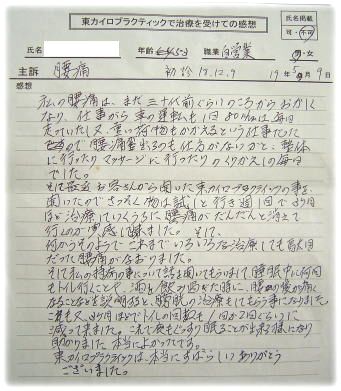 東カイロプラクティックで治療を受けての感想
氏名掲載
可・不可
氏名
年齢 53
職業 自営業
男・女
主訴 腰痛
初診 18.12.9
19年5月9日
感想
私の腰痛は、まだ三十代前ぐらいのころからおかしく
なり、仕事がら車の運転も1回800kmは毎日
走っていたし又、重い荷物もかかえるという仕事だった
ので腰痛が出るのも仕方がないかと、整体
に行ったりマッサージに行ったりのくりかえしの毎日
でした。
そして最近お客さんから聞いた東カイロプラクティックの事を
聞いたのでさっそく物は試しと行き週1回で3ヶ月
ほど治療していくうちに腰痛がだんだんと消えて
行くのが実感して来ました。そして、
何からそのようでこれまでいろいろな治療しても駄目
だった腰痛がなおりました。
そして私の持病の事についても話を聞いてもらいまして、睡眠中に何回
もトイレ行くことや、酒を飲み過ぎた時に、腰の変が痛く
なることなどを説明すると、膀胱の治療もしてもらう事になりました。
これも又、3ヶ月ほどでトイレの回数も1回か2回ぐらいに
減って来ました。これで夜もぐっすり眠ることが出来る様になり
助かりました。本当によかったです。
東カイロプラクティックは、本当にすばらしいありがとう
ございました。